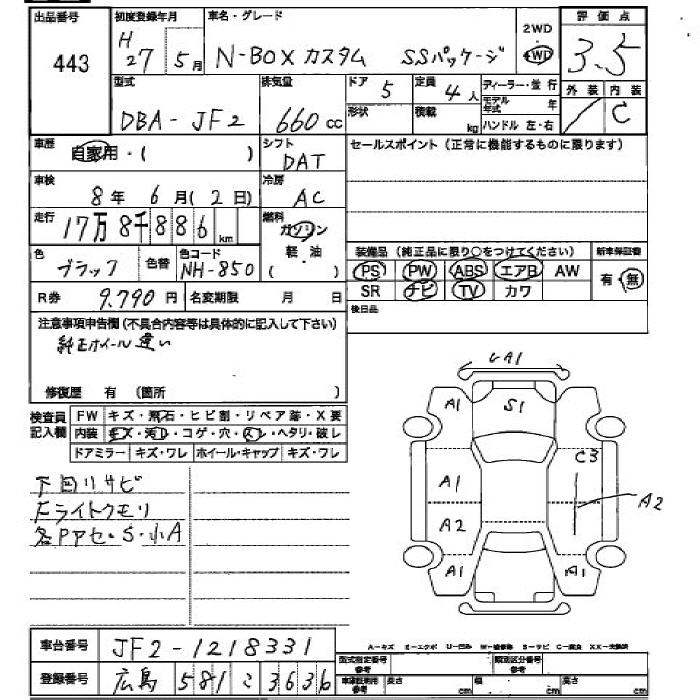 出品番号 初度登録年月 車名・グレード 2WD 評価点
443 H27 5月 N-BOX カスタム SSパッケージ 4WD 3.5
型式 排気量 ドア 5 定員 4人 ディーラー・並行 外装 内装
モデル年式 年
DBA-JF2 660cc 形状 積載 kg ハンドル 左・右 C
車歴 自家用・( ) シフト DAT セールスポイント(正常に機能するものに限ります)
車検 8年 6月(2日) 冷房 AC
走行 17万8千886km 燃料 ガソリン
軽・油
( )
色 ブラック 色替 色コード NH-850
装備品(純正品に限り○をつけてください) 新車保証書
PS PW ABS エアB AW 有・無
SR ナビ TV カワ
R券 9,790円 名変期限 月 日
後日品
注意事項申告欄(不具合内容等は具体的に記入して下さい)
純正ホイール違い
修復歴 有(箇所 )
検査員記入欄 FW キズ・飛石・ヒビ割・リペア跡・X要
内装 キズ・汚レ・コゲ・穴・スレ・ヘタリ・破レ
ドアミラー キズ・ワレ ホイール・キャップ キズ・ワレ
下回リサビ
Fライトクモリ
各PアセS・小A
UA1
A1 S1
A1 C3
A2 A2
A1 A1
車台番号 JF2-1218331
登録番号 広島 581 こ 3636
A-キズ E-エクボ U-凹み W-補修跡 S-サビ C-腐食 XX-交換済
型式指定番号 参考 類別区分番号 参考
車庫証明用 参考 長さ cm 幅 cm 高さ cm